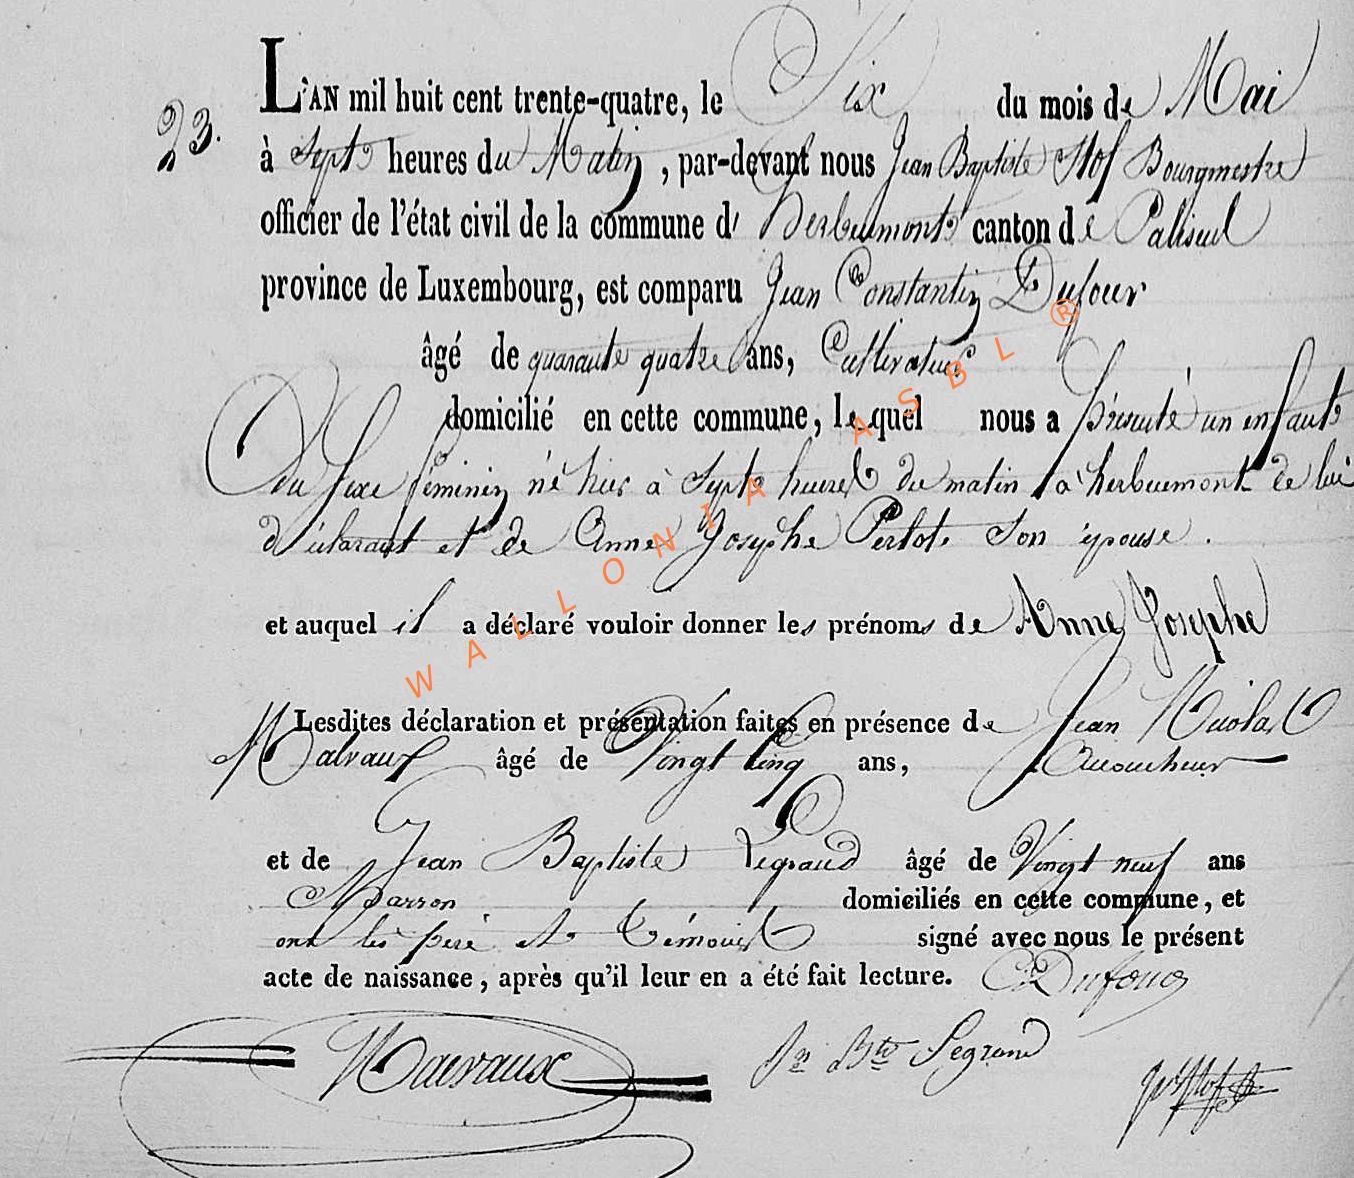 L'AN mil huit cent trente-quatre, le Six du mois de Mai
23.
à Sept heures du Matin, par-devant nous Jean Baptiste Stof Bourgmestre
officier de l'état civil de la commune d' Herbeumont canton de Paliseul
province de Luxembourg, est comparu Jean Constantin Dufour
âgé de quarante quatre ans, Cultivateur
domicilié en cette commune, lequel nous a présenté un enfant
du sexe féminin né hier à Sept heures du matin à herbeumont de lui
déclarant et de Anne Josephe Perlot son épouse.
et auquel il a déclaré vouloir donner les prénoms de Anne Josephe
Lesdites déclaration et présentation faites en présence de Jean Nicolas
Malvaux âgé de Vingt Cinq ans, Accoucheur
et de Jean Baptiste Legrand âgé de Vingt neuf ans
domiciliés en cette commune, et
ont les père et témoins signé avec nous le présent
acte de naissance, après qu'il leur en a été fait lecture. Dufour
Malvaux Jn Bte Legrand
WALLONIA ASBL ®